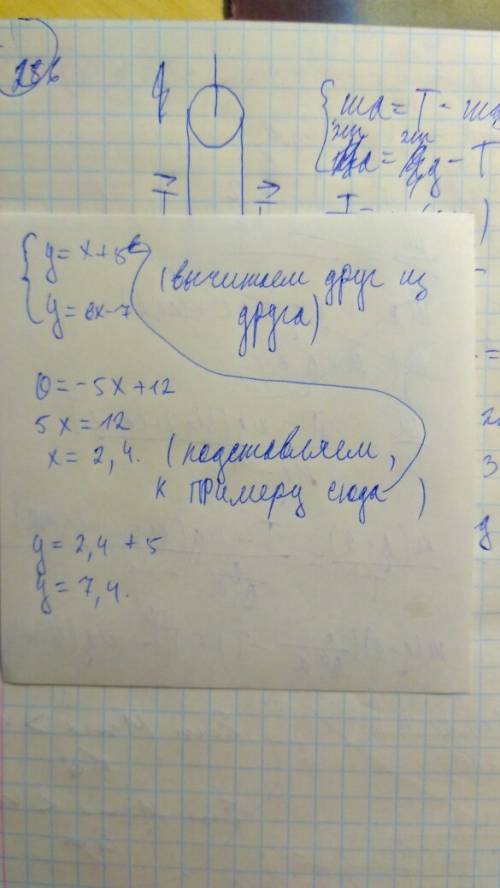 286
ma = T - mg
T
y = x + 5
y = 6x - 7
(вычитаем друг из
друга)
0 = -5x + 12
5x = 12
x = 2,4. (подставляем,
к примеру сюда)
y = 2,4 + 5
y = 7,4.